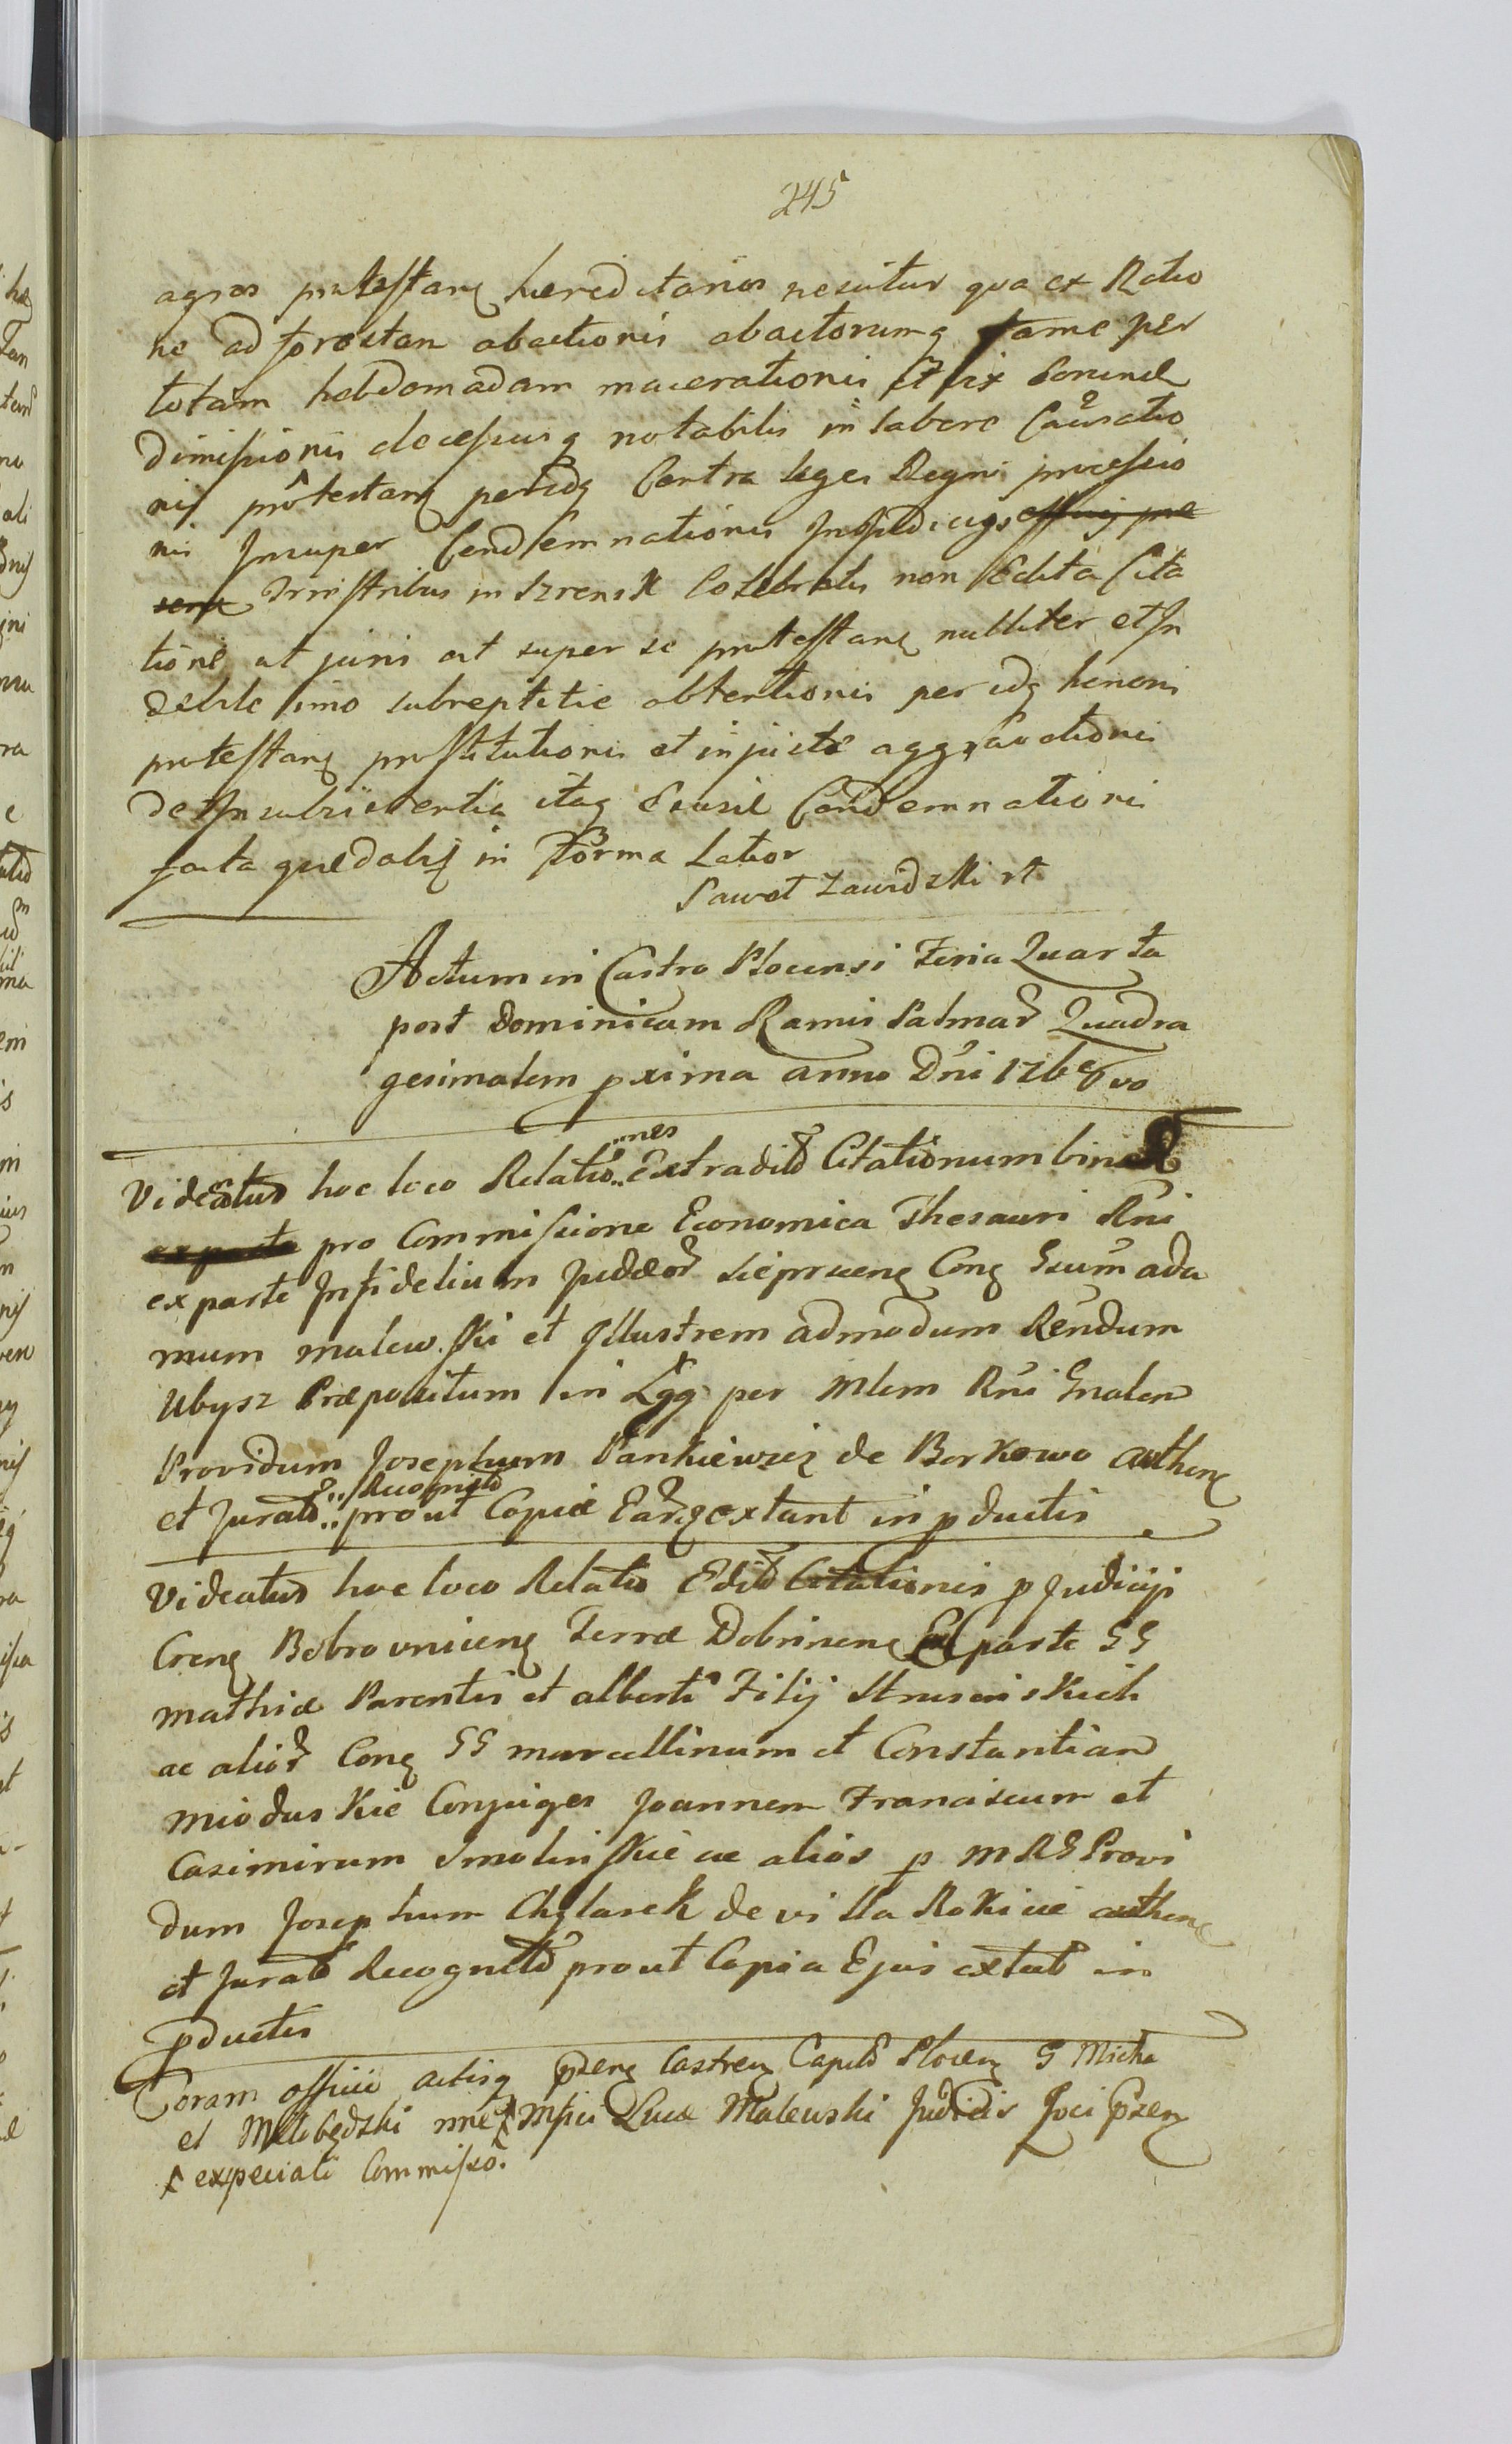 245
agros protestang hereditarios nescitur qua ex Ratio
ne ad forestam abactionis abactorumq fame per
totam hebdomadam macerationis Et vix
Dimissionis decessusq notabilis in labore Causatio
nis protestang per idq Contra leges Regni processio
nis Insuper Condemnationis In Judicijs
Ministribus in Szrensk Celebratis non Edita Cita
tione ut juris est super se protestang nulliter et In
debite imo subreptitie obtentionis per idq honoris
protestang prostitutionis et injuste aggravationis
de Insubsistentia itaq Ejusd Condemnationis
facta quedalis in Forma Latior
Paweł Zawidzki rt
Actum in Castro Plocensi Feria Quarta
post Dominicam Ramis Palmar Quadra
gesimalem pxima anno Dni 176
Videatur hoc loco Relatio..nes Extradit Citationum binar
ex parte pro Commissione Economica Thesauri Rni
ex parte Infidelium Judeor Sieprcens Cong Gsum ada
mum malew.ski et Illustrem admodum Rendum
Ubysz Præpositum in Lgg per Mlem Rni Gnalem
Providum Josephum Pankiewicz de Borkowo authen
et Jurat..Recognit prout Copiæ Earq extant in pductis
Videatur hoc loco Relatio Edit Citationis p Judicijs
Creng Bobrovniceng Terræ Dobrineng Ex parte GG
mathiæ Parentis et alberti Filij Strusinskich
ac alior Cong GG marcellinum et Constantiam
Mioduskie Conjuges Joannem Franciscum et
Casimirum Smolinskie ac alios p MRG Provi
dum Josephum Chylasek de villa Rokicie authen
et Jurat Recognit prout Copia Ejus extat in
pductis
Coram officio actisq pseng Castreng Capit Plocen G Micha
el Mlebędzki nne Mfici Lucæ Malewski Judicis Joci pseng
expeciali Commisso.